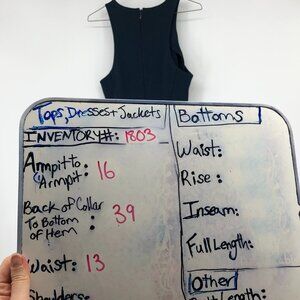 Tops, Dresses + Jackets
INVENTORY#: 1803
Armpit to
Armpit: 16
Back of Collar
To Bottom : 39
of Hem
Waist: 13
Shoulders:
Bottoms
Waist:
Rise:
Inseam:
Full Length:
Other